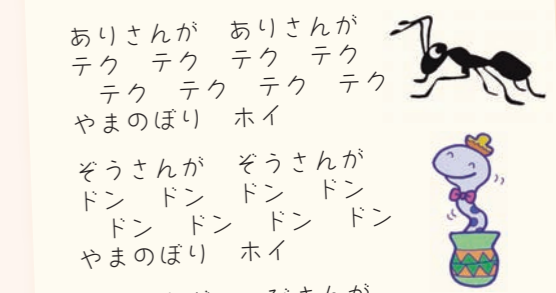 ありさんが　ありさんが
テク　テク　テク　テク
テク　テク　テク　テク
やまのぼり　ホイ
ぞうさんが　ぞうさんが
ドン　ドン　ドン　ドン
ドン　ドン　ドン　ドン
やまのぼり　ホイ